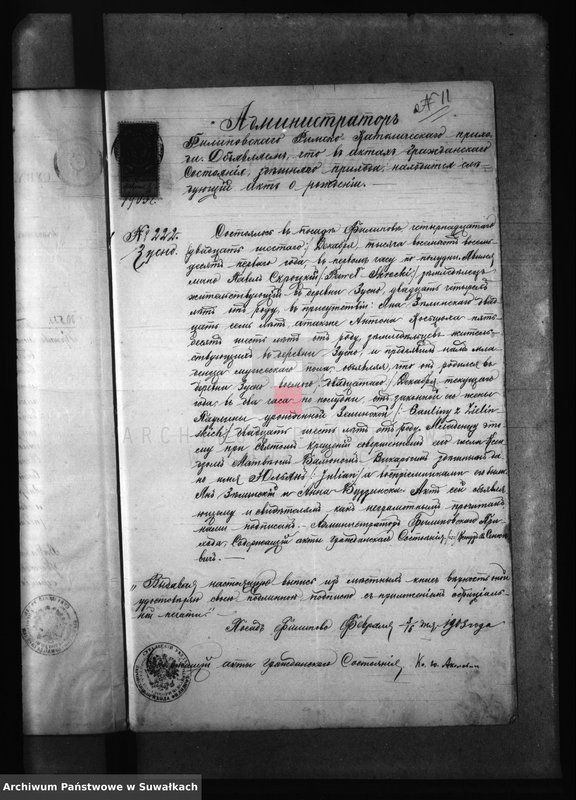 № 11
Администраторъ
Филиповскаго Римско-Католическаго прихо-
да. Объявляемъ, что въ актахъ гражданскаго
Состоянія, здѣшняго прихода, находится слѣ-
дующій актъ о рожденіи.
№ 222.
Зусно.
Состоялось въ посадѣ Филиповѣ четырнадцатаго
/двадцать шестаго/ Декабря, тысяча восемьсотъ восемь-
десятъ перваго года, въ первомъ часу по полудни. Явился
лично Павелъ Скроцкій /Paweł Skrocki/ земледѣлецъ
жительствующій въ деревни Зусно, двадцать четырехъ
лѣтъ отъ роду, въ присутствіи: Яна Зелинскаго двад-
цать семь лѣтъ, а также Антона пять-
десятъ шесть лѣтъ отъ роду, земледѣльцевъ житель-
ствующихъ въ деревни Зусно, и предъявилъ намъ мла-
денца мужескаго пола, объявляя, что онъ родился въ
деревни Зусно восьмаго /двадцатаго/ Декабря текущаго
года, въ два часа по полудни отъ законной его жены
Паулины урожденной Зелинской /Pauliny z Zielin-
skich/ двадцать шесть лѣтъ отъ роду. Младенцу это-
му при Святомъ крещеніи совершенномъ сего числа
Викаріемъ здѣшнимъ да-
но имя Юльянъ /Julian/ а воспріемниками его были
Янъ Зелинскій и Анна Актъ сей объявля-
ющему и свидѣтелямъ какъ неграмотнымъ прочитанъ
нами подписанъ. Администраторъ Филиповскаго При-
хода, Содержащій акты гражданскаго Состоянія
„Выдавая настоящую выпись изъ мѣстныхъ книгъ вѣрность оной
удостовѣряю своею подписью съ приложеніемъ оффиціаль-
ной печати.“
Посадъ Филипово Февраля 1903 года
акты гражданскаго Состоянія, Кс.
Archiwum Państwowe w Suwałkach